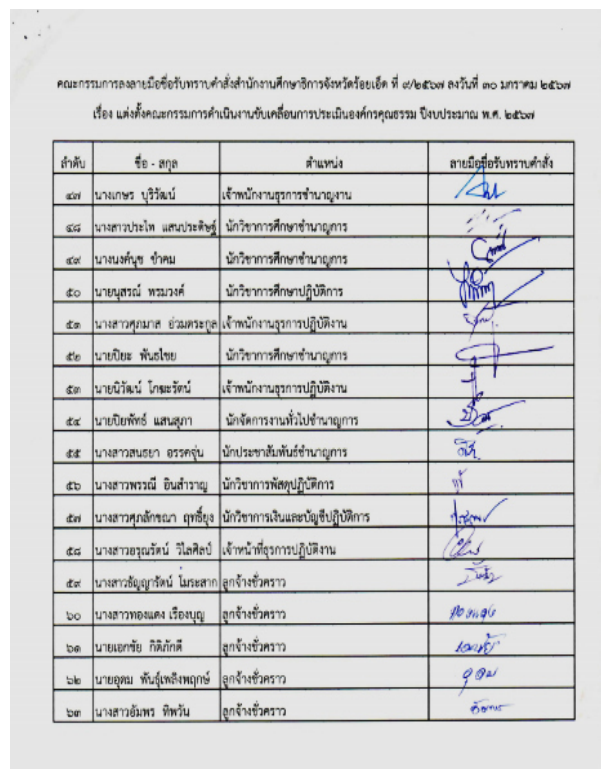 คณะกรรมการลงลายมือชื่อรับทราบคำสั่งสำนักงานศึกษาธิการจังหวัดร้อยเอ็ด ที่ ๙/๒๕๖๗ ลงวันที่ ๓๐ มกราคม ๒๕๖๗
เรื่อง แต่งตั้งคณะกรรมการดำเนินงานขับเคลื่อนการประเมินองค์กรคุณธรรม ปีงบประมาณ พ.ศ. ๒๕๖๗
ลำดับ ชื่อ - สกุล ตำแหน่ง ลายมือชื่อรับทราบคำสั่ง
๔๗ นางเกษร บุริวัฒน์ เจ้าพนักงานธุรการชำนาญงาน
๔๘ นางสาวประไพ แสนประดิษฐ์ นักวิชาการศึกษาชำนาญการ
๔๙ นางนงค์นุช ขำคม นักวิชาการศึกษาชำนาญการ
๕๐ นายนุสรณ์ พรมวงค์ นักวิชาการศึกษาปฏิบัติการ
๕๑ นางสาวศุภมาส อ่วมตระกูล เจ้าพนักงานธุรการปฏิบัติงาน
๕๒ นายปิยะ พันธไชย นักวิชาการศึกษาชำนาญการ
๕๓ นายนิวัฒน์ โกฆะรัตน์ เจ้าพนักงานธุรการปฏิบัติงาน
๕๔ นายปิยพัทธ์ แสนสุภา นักจัดการงานทั่วไปชำนาญการ
๕๕ นางสาวสนธยา อรรคจุ่น นักประชาสัมพันธ์ชำนาญการ
๕๖ นางสาวพรรณี อินสำราญ นักวิชาการพัสดุปฏิบัติการ
๕๗ นางสาวศุภลักขณา ฤทธิ์ยง นักวิชาการเงินและบัญชีปฏิบัติการ
๕๘ นางสาวอรุณรัตน์ วิไลศิลป์ เจ้าหน้าที่ธุรการปฏิบัติงาน
๕๙ นางสาวธัญญารัตน์ โมระสาก ลูกจ้างชั่วคราว
๖๐ นางสาวทองแดง เรืองบุญ ลูกจ้างชั่วคราว ทองแดง
๖๑ นายเอกชัย กิติภักดี ลูกจ้างชั่วคราว เอกชัย
๖๒ นายอุดม พันธุ์เพลิงพฤกษ์ ลูกจ้างชั่วคราว อุดม
๖๓ นางสาวอัมพร ทิพวัน ลูกจ้างชั่วคราว อัมพร